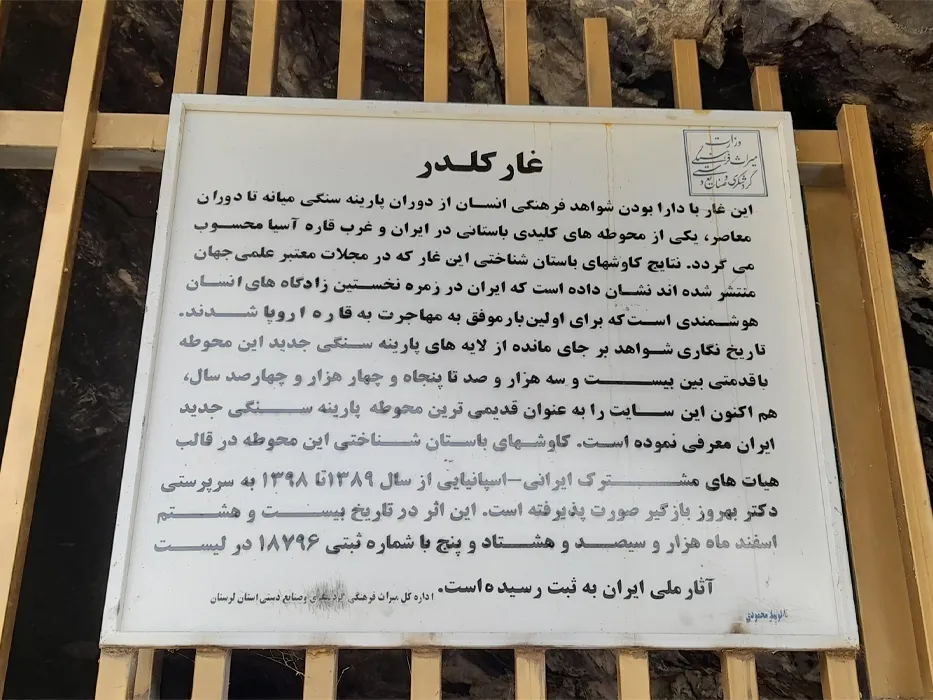 غار کلدر
وزارت
میراث فرهنگی
گردشگری و صنایع دستی
این غار با دارا بودن شواهد فرهنگی انسان از دوران پارینه سنگی میانه تا دوران
معاصر، یکی از محوطه های کلیدی باستانی در ایران و غرب قاره آسیا محسوب
می گردد. نتایج کاوشهای باستان شناختی این غار که در مجلات معتبر علمی جهان
منتشر شده اند نشان داده است که ایران در زمره نخستین زادگاه های انسان
هوشمندی است که برای اولین بار موفق به مهاجرت به قاره اروپا شدند.
تاریخ نگاری شواهد بر جای مانده از لایه های پارینه سنگی جدید این محوطه
با قدمتی بین بیست و سه هزار و صد تا پنجاه و چهار هزار و چهارصد سال،
هم اکنون این سایت را به عنوان قدیمی ترین محوطه پارینه سنگی جدید
ایران معرفی نموده است. کاوشهای باستان شناختی این محوطه در قالب
هیات های مشترک ایرانی-اسپانیایی از سال ۱۳۸۹ تا ۱۳۹۸ به سرپرستی
دکتر بهروز بازگیر صورت پذیرفته است. این اثر در تاریخ بیست و هشتم
اسفند ماه هزار و سیصد و هشتاد و پنج با شماره ثبتی ۱۸۷۹۶ در لیست
آثار ملی ایران به ثبت رسیده است.
اداره کل میراث فرهنگی گردشگری وصنایع دستی استان لرستان
محمودی